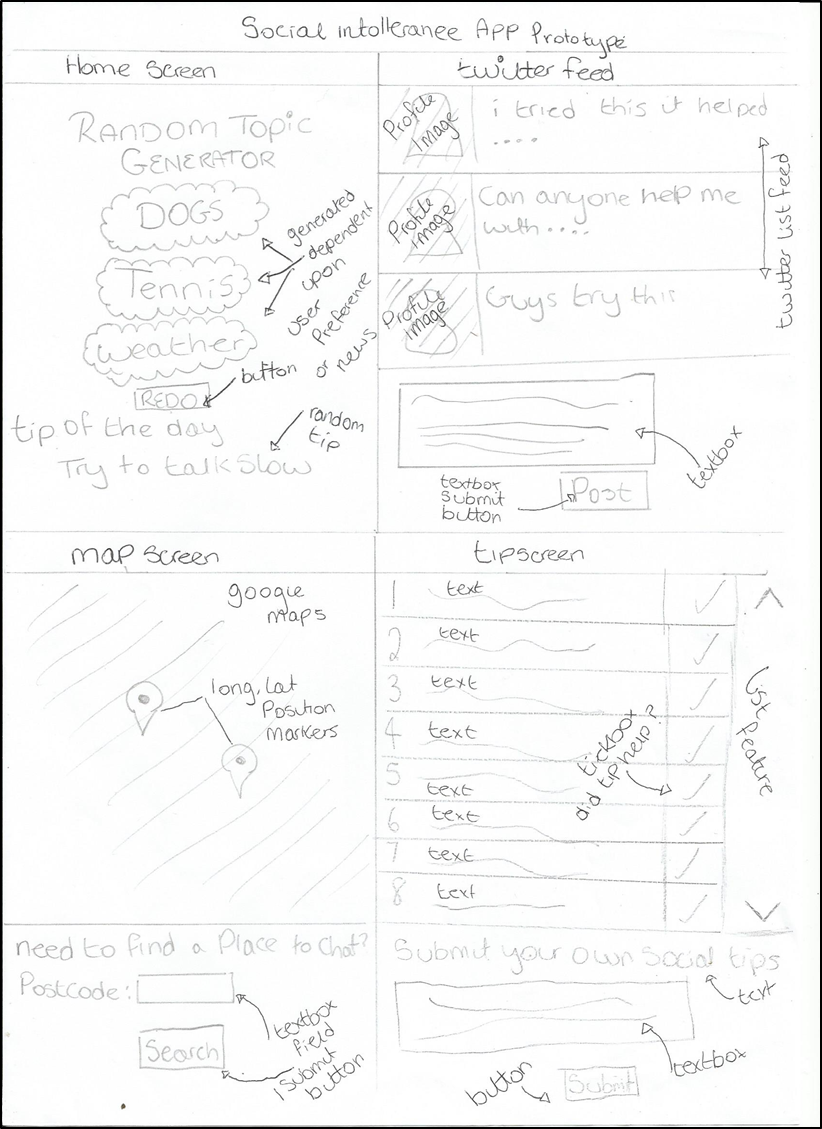 Social intolleranee App Prototype
Home Screen
RANDOM TOPIC
GENERATOR
DOGS
Tennis
weather
generated
dependent
upon
user
Preference
or news
REDO
button
tip of the day
random
tip
Try to talk slow
twitter feed
Profile
Image
i tried this it helped
....
Profile
image
Can anyone help me
with....
Profile
Image
Guys try this
twitter list feed
textbox
textbox
submit
button
Post
map screen
google
maps
long, lat
Position
markers
need to find a Place to chat?
Postcode:
textbox
field
Search
submit
button
tipscreen
1 text
2 text
3 text
4 text
5 text
6 text
7 text
8 text
tickbox
did tip help?
list feature
Submit your own social tips
text
textbox
button
Submit